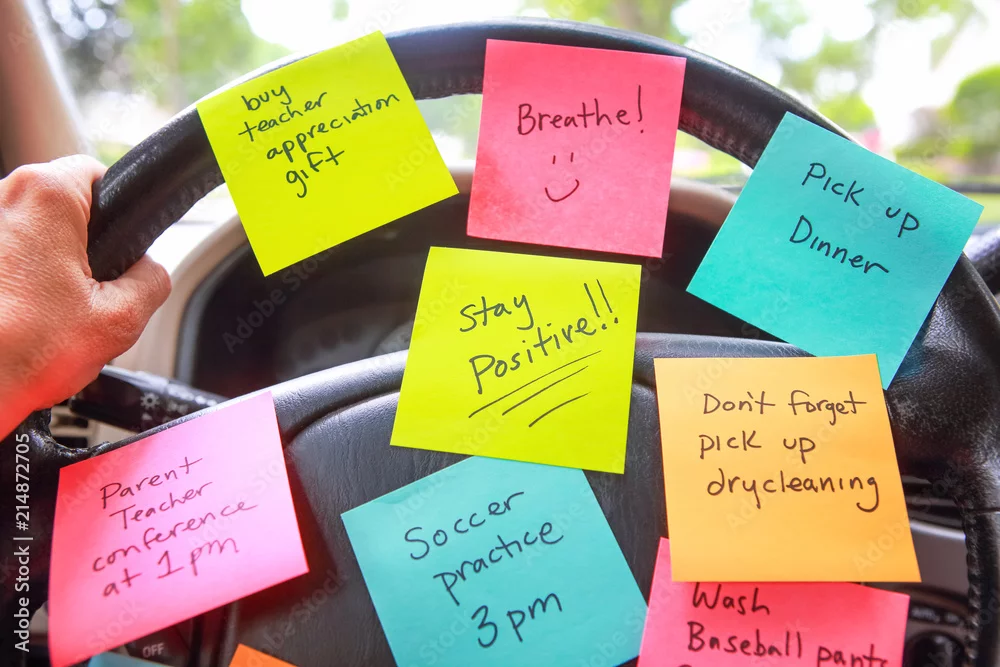 buy
teacher
appreciation
gift
Breathe!
Pick up
Dinner
Stay
Positive!!
Don't forget
pick up
drycleaning
Parent
Teacher
conference
at 1 pm
Soccer
practice
3 pm
Wash
Baseball pant
OFF
Adobe Stock
#214872705